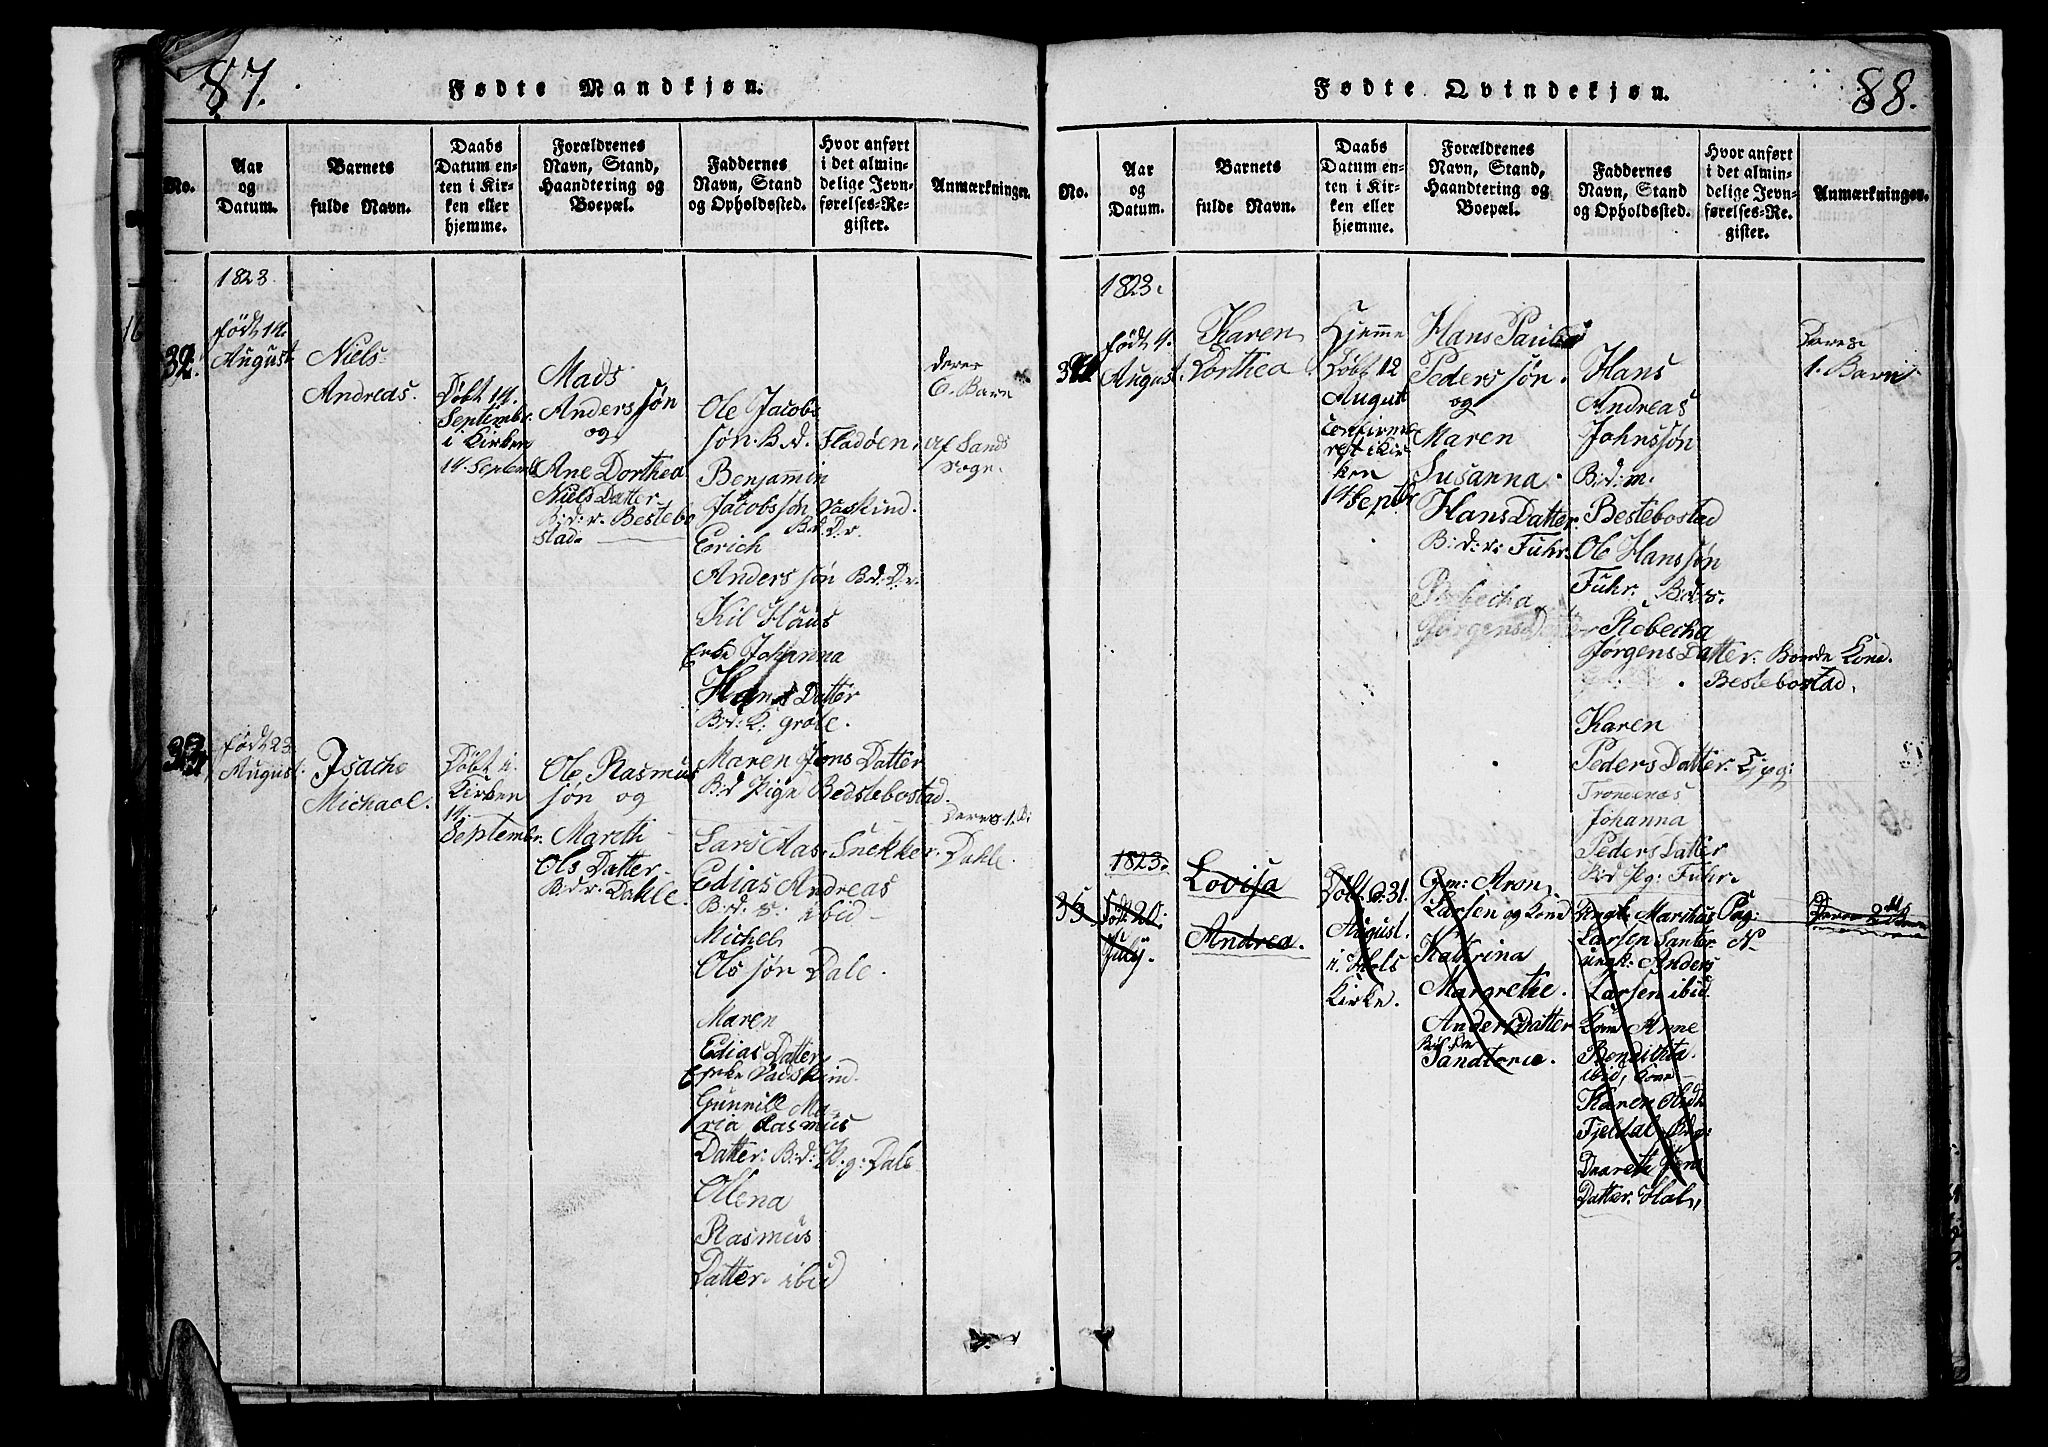 87.
Fødte Mandkjøn.
No.
Aar
og
Datum.
Barnets
fulde Navn.
Daabs
Datum en-
ten i Kir-
ken eller
hjemme.
Forældrenes
Navn, Stand,
Haandtering og
Boepæl.
Faddernes
Navn, Stand
og Opholdssted.
Hvor anført
i det almin-
delige Jevn-
førelses-Re-
gister.
Anmærkninger.
1823.
32.
Født 14.
August
Niels
Andreas.
Døbt 14.
Septembr.
i Kirken
14. Septemb
Mads
Anderssøn
og
Ane Dorthea
Niels Datter
B: d: v. Bestebo
stad
Ole Jacobs
søn. B: d. Fladøen.
Benjamin
Jacobssøn Vaskind.
B: d: D: v.
Erich
Anders søn B: d: D: v.
Kil Haus
Enke Johanna
Hans Datter
B: d: K: grote.
Maren Jons Datter
B: d Pige Bedstebostad.
deres
6. Barn
Af Sands
Sogn.
33.
født 23.
August.
Isach
Michael.
Døbt i
Kirken
14.
Septembr.
Ole Rasmus
søn og
Mareth
Ols Datter
B: d: v: Dahle.
Lars Aas. Snekker.
Edias Andreas
B: d: s: ibid
Michel
Ols søn Dale.
Maren
Edias Datter
Enke Vadskind.
Gunnill Ma-
ria Rasmus
Datter: B: d: P: g: Dale
Ollena
Rasmus
Datter. ibid
Deres 1. B:
Dahle.
88.
Fødte Qvindekjøn.
No.
Aar
og
Datum.
Barnets
fulde Navn.
Daabs
Datum en-
ten i Kir-
ken eller
hjemme.
Forældrenes
Navn, Stand,
Haandtering og
Boepæl.
Faddernes
Navn, Stand
og Opholdssted.
Hvor anført
i det almin-
delige Jevn-
førelses-Re-
gister.
Anmærkninger.
1823.
født 4.
August.
Karen
Dorthea
Hjemme
Døbt 12
August
Confirme
rest i Kir
ken
14 Septbr
Hans Paul
Peders søn.
og
Maren
Susanna.
Hans Datter.
B: d: v: Fuhr.
Rebecha
Jørgens Datter
Hans
Andreas
Johnssøn
B: d: m.
Bestebostad
Ole Hanssøn
Fuhr. B: d: s.
Rebecka
Jørgens Datter: Bonde Kone.
Bestebostad.
Karen
Peders Datter.
Tronenæs
Johanna
Peders Datter
B: d Pg: Fuhr.
Deres
1. Barn
1823.
35.
Født 20.
July.
Lovisa
Andrea.
Døbt d: 31.
August.
i. Hols
Kirke.
Gm: Aron
Larsen og Kone
Katrina
Margrethe.
Anders Datter
Sandtorve.
Ungk: Marthus
Larsen Santor.
ungk: Anders
Larsen ibid.
Kone Anne
Bendichta.
ibid, Kone
Karen
Fjeldal.
Daareth
Datter. Hol,
Pag:
N